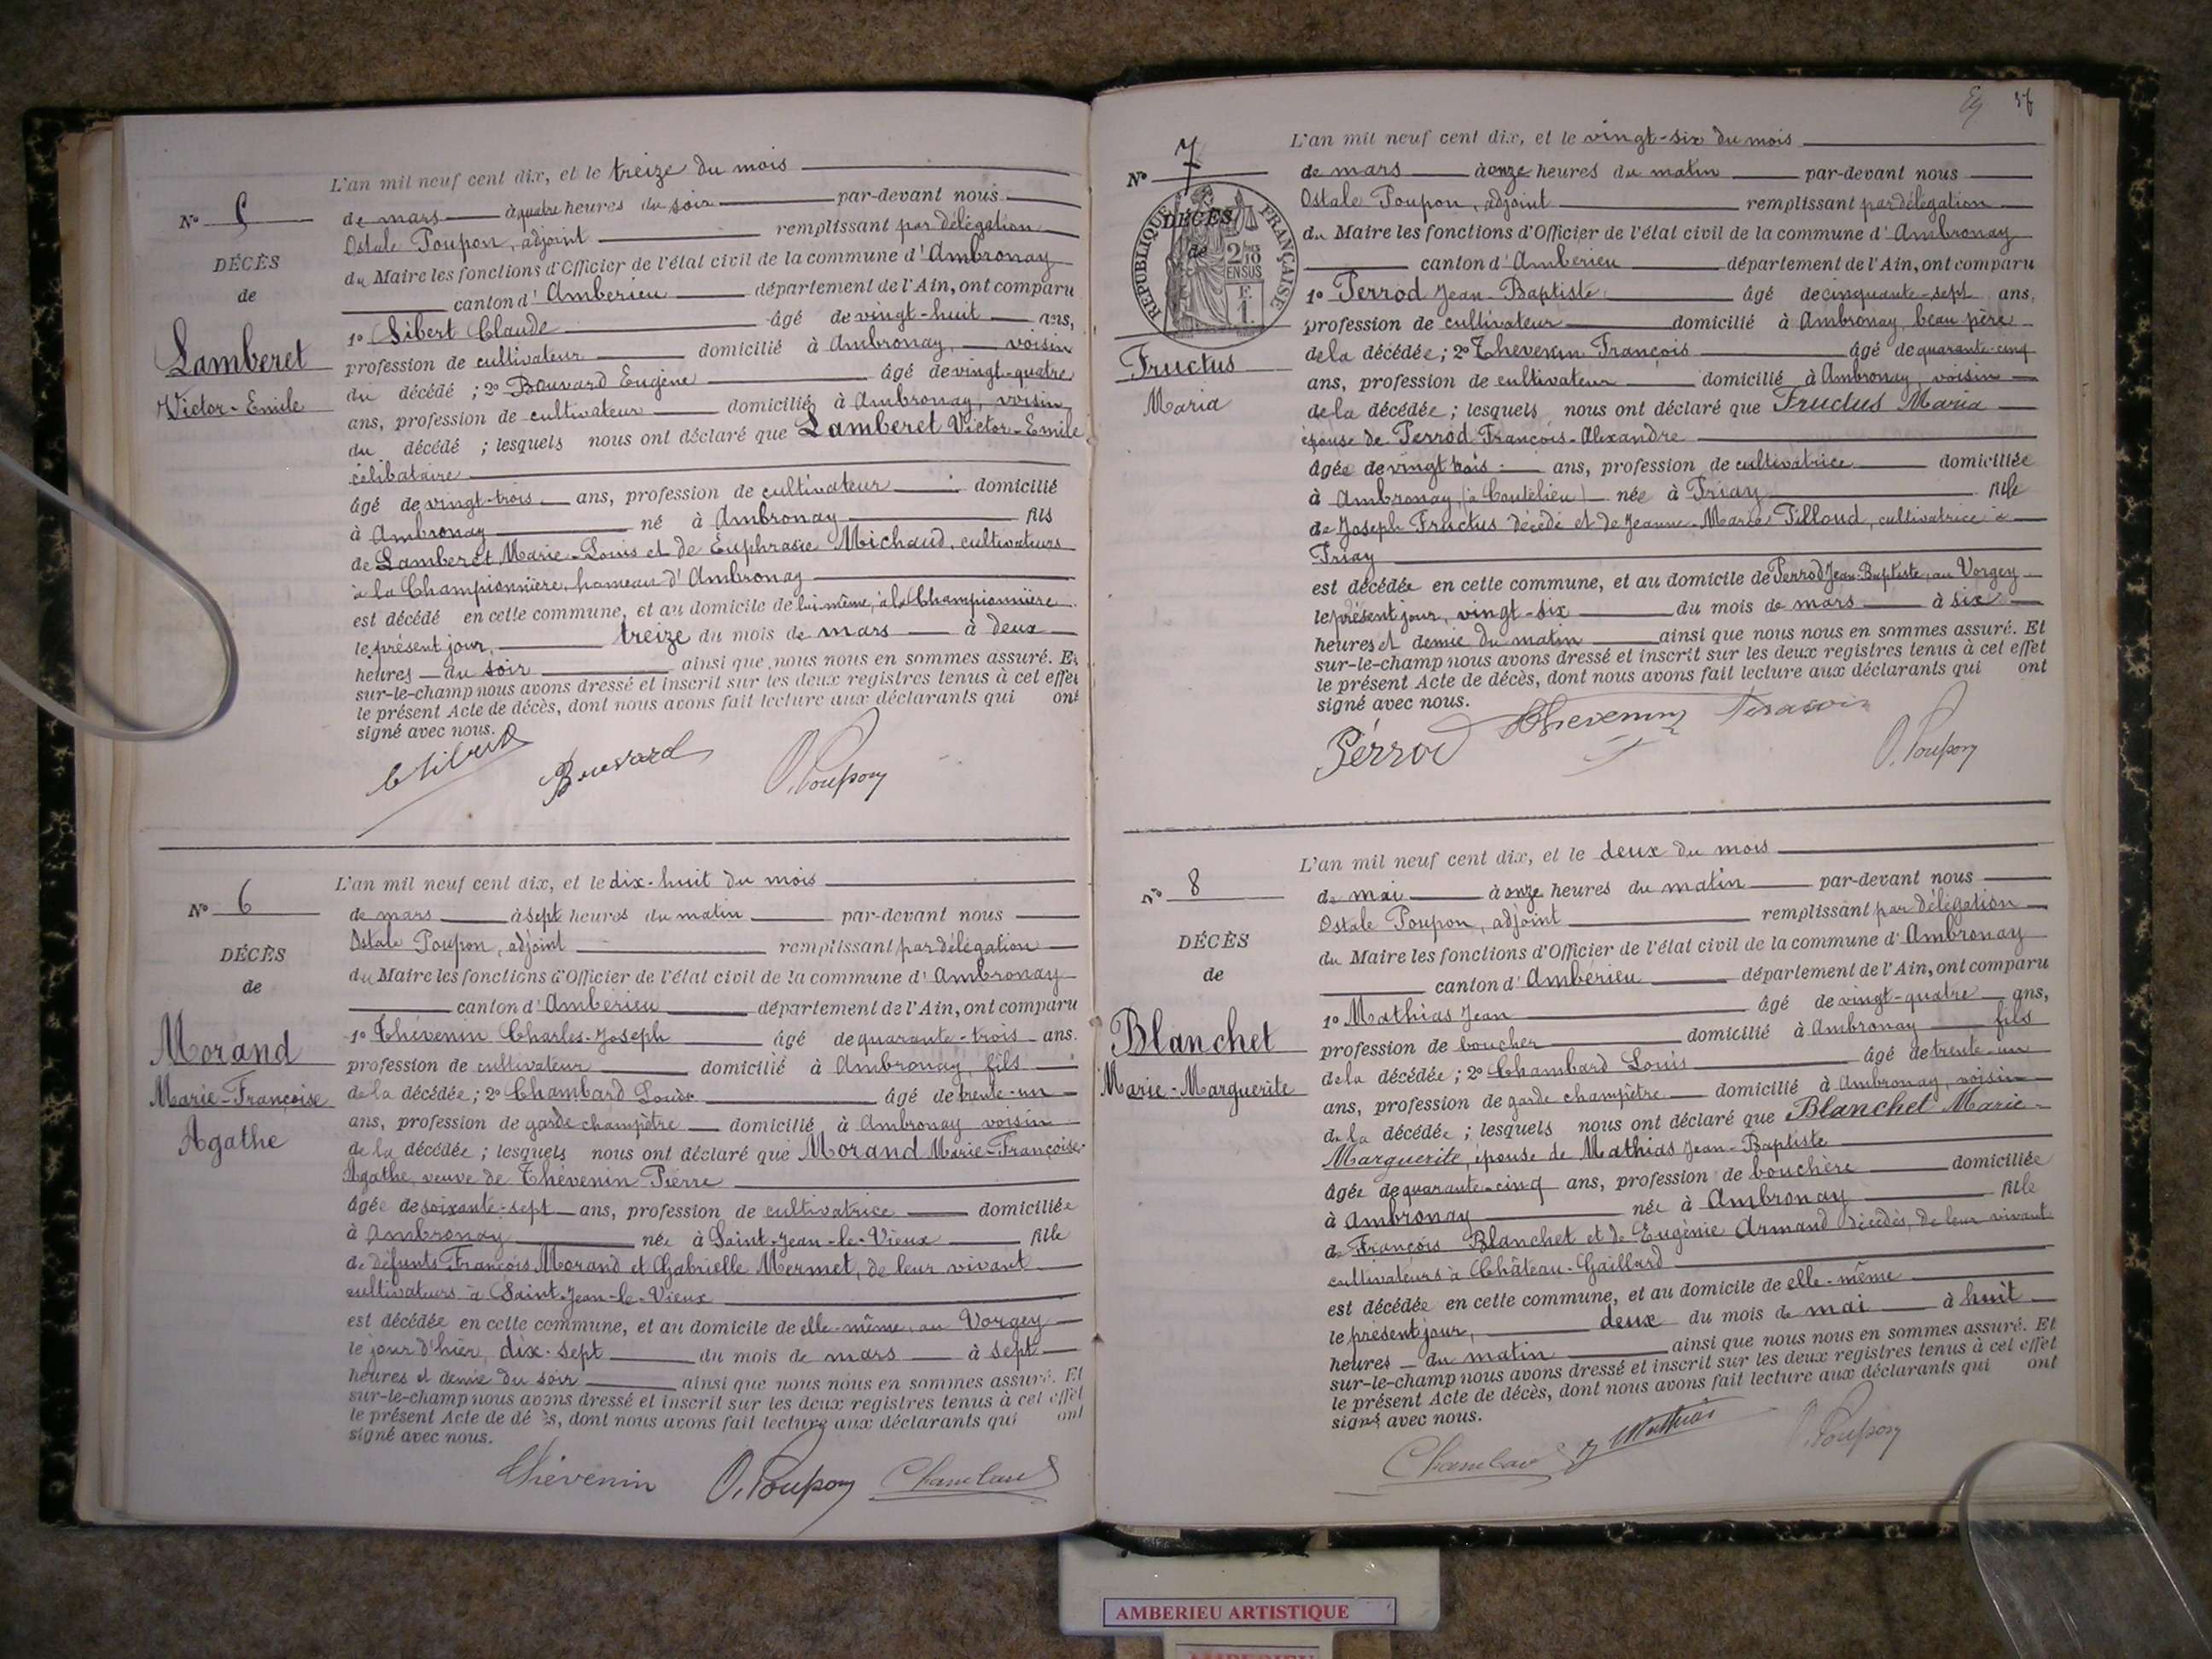 L'an mil neuf cent dix, et le treize du mois
N° 5
de mars à quatre heures du soir par-devant nous
Ostale Poupon, adjoint remplissant par délégation
DÉCÈS
du Maire les fonctions d'Officier de l'état civil de la commune d'Ambronay
de
canton d'Amberieu département de l'Ain, ont comparu
1° Sibert Claude âgé de vingt-huit ans,
Lamberet
profession de cultivateur domicilié à Ambronay, voisin
Victor-Emile
du décédé ; 2° Bouvard Eugène âgé de vingt-quatre
ans, profession de cultivateur domicilié à Ambronay, voisin
du décédé ; lesquels nous ont déclaré que Lamberet Victor-Emile
célibataire
âgé de vingt-trois ans, profession de cultivateur domicilié
à Ambronay né à Ambronay fils
de Lamberet Marie-Louis et de Euphrasie Michaud, cultivateurs
à la Championnière, hameau d'Ambronay
est décédé en cette commune, et au domicile de lui-même, à la Championnière
le présent jour, treize du mois de mars à deux
heures du soir ainsi que nous nous en sommes assuré. Et
sur-le-champ nous avons dressé et inscrit sur les deux registres tenus à cet effet
le présent Acte de décès, dont nous avons fait lecture aux déclarants qui ont
signé avec nous.
C Sibert Bouvard O. Poupon
L'an mil neuf cent dix, et le dix-huit du mois
N° 6
de mars à sept heures du matin par-devant nous
Ostale Poupon, adjoint remplissant par délégation
DÉCÈS
du Maire les fonctions d'Officier de l'état civil de la commune d'Ambronay
de
canton d'Amberieu département de l'Ain, ont comparu
1° Thévenin Charles-Joseph âgé de quarante-trois ans.
Morand
profession de cultivateur domicilié à Ambronay, fils
Marie-Françoise
de la décédée ; 2° Chambard Louis âgé de trente-un
ans, profession de garde champêtre domicilié à Ambronay voisin
Agathe
de la décédée ; lesquels nous ont déclaré que Morand Marie-Françoise
Agathe, veuve de Thévenin Pierre
âgée de soixante-sept ans, profession de cultivatrice domiciliée
à Ambronay née à Saint-Jean-le-Vieux fille
de défunts François Morand et Gabrielle Mermet, de leur vivant
cultivateurs à Saint-Jean-le-Vieux
est décédée en cette commune, et au domicile de elle-même, au Vorgey
le jour d'hier, dix-sept du mois de mars à sept
heures et demie du soir ainsi que nous nous en sommes assuré. Et
sur-le-champ nous avons dressé et inscrit sur les deux registres tenus à cet effet
le présent Acte de décès, dont nous avons fait lecture aux déclarants qui ont
signé avec nous.
Thévenin O. Poupon Chambard
L'an mil neuf cent dix, et le vingt-six du mois
N° 7
de mars à onze heures du matin par-devant nous
Ostale Poupon, adjoint remplissant par délégation
DÉCÈS
du Maire les fonctions d'Officier de l'état civil de la commune d'Ambronay
de
RÉPUBLIQUE FRANÇAISE
2/10 EN SUS
canton d'Amberieu département de l'Ain, ont comparu
1° Perrod Jean-Baptiste âgé de cinquante-sept ans,
profession de cultivateur domicilié à Ambronay, beau père
Fructus
de la décédée ; 2° Thevenin François âgé de quarante-cinq
ans, profession de cultivateur domicilié à Ambronay, voisin
Maria
de la décédée ; lesquels nous ont déclaré que Fructus Maria
épouse de Perrod François-Alexandre
âgée de vingt trois ans, profession de cultivatrice domiciliée
à Ambronay (à Coutelieu) née à Priay fille
de Joseph Fructus décédé et de Jeanne-Marie Pilloud, cultivatrice à
Priay
est décédée en cette commune, et au domicile de Perrod Jean-Baptiste, au Vorgey
le présent jour, vingt-six du mois de mars à six
heures et demie du matin ainsi que nous nous en sommes assuré. Et
sur-le-champ nous avons dressé et inscrit sur les deux registres tenus à cet effet
le présent Acte de décès, dont nous avons fait lecture aux déclarants qui ont
signé avec nous.
Pérrod Thevenin O. Poupon
L'an mil neuf cent dix, et le deux du mois
N° 8
de mai à onze heures du matin par-devant nous
Ostale Poupon, adjoint remplissant par délégation
DÉCÈS
du Maire les fonctions d'Officier de l'état civil de la commune d'Ambronay
de
canton d'Amberieu département de l'Ain, ont comparu
1° Mathias Jean âgé de vingt-quatre ans,
Blanchet
profession de boucher domicilié à Ambronay fils
Marie-Marguerite
de la décédée ; 2° Chambard Louis âgé de trente-un
ans, profession de garde champêtre domicilié à Ambronay, voisin
de la décédée ; lesquels nous ont déclaré que Blanchet Marie-
Marguerite, épouse de Mathias Jean-Baptiste
âgée de quarante-cinq ans, profession de bouchère domiciliée
à Ambronay née à Ambronay fille
de François Blanchet et de Eugénie Armand décédés, de leur vivant
cultivateurs à Château-Gaillard
est décédée en cette commune, et au domicile de elle-même
le présent jour, deux du mois de mai à huit
heures du matin ainsi que nous nous en sommes assuré. Et
sur-le-champ nous avons dressé et inscrit sur les deux registres tenus à cet effet
le présent Acte de décès, dont nous avons fait lecture aux déclarants qui ont
signé avec nous.
Chambard J Mathias O. Poupon
AMBERIEU ARTISTIQUE
AMBERIEU